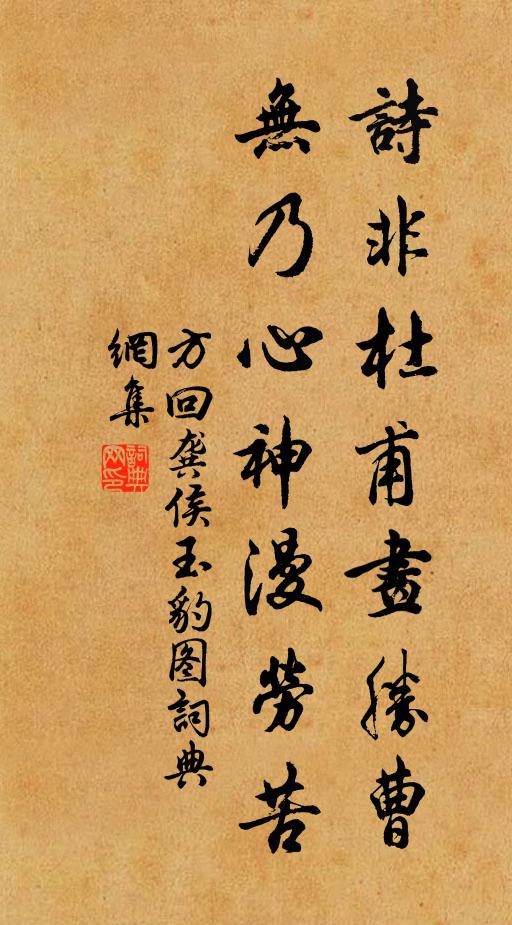 詩非杜甫畫勝曹
無乃心神漫勞苦
方回龔侯玉豹图詞典
網集
詞典网印